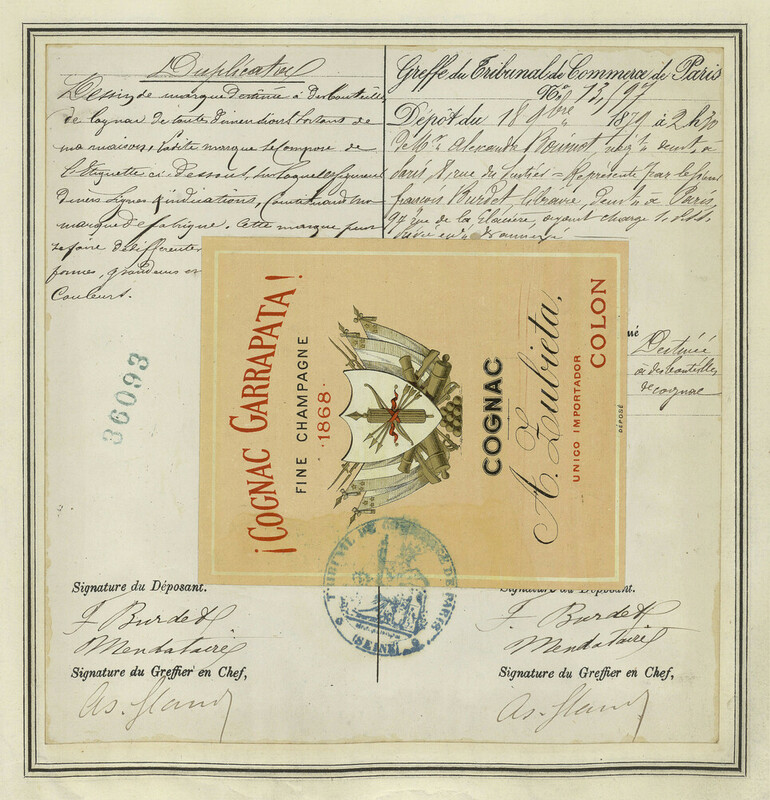 Duplicata
Dessin de marque destinée à des bouteilles
de Cognac de toutes dimensions sortant de
ma maison, ladite marque se compose de
l'Etiquette ci-dessous, sur laquelle figurent
divers signes & indications, constituant ma
marque de fabrique. Cette marque peut
se faire de différentes
formes, grandeurs et
Couleurs.
36093
Greffe du Tribunal de Commerce de Paris
No 13,197
Dépôt du 18 9bre 1879 à 2 h 30
de Mr Alexandre négt demt à
Paris, 8, rue du = Représenté par le Sieur
françois Burdet, libraire, demt à Paris,
97 rue de la Glacière, ayant charge
Destinée
à des bouteilles
de cognac
¡COGNAC GARRAPATA!
FINE CHAMPAGNE
·1868·
COGNAC
A. Zubieta,
UNICO IMPORTADOR
COLON
DÉPOSÉ
TRIBUNAL DE COMMERCE DE PARIS
(SEINE)
Signature du Déposant.
F Burdet
Mandataire
Signature du Greffier en Chef,
Signature du Déposant.
F Burdet
Mandataire
Signature du Greffier en Chef,